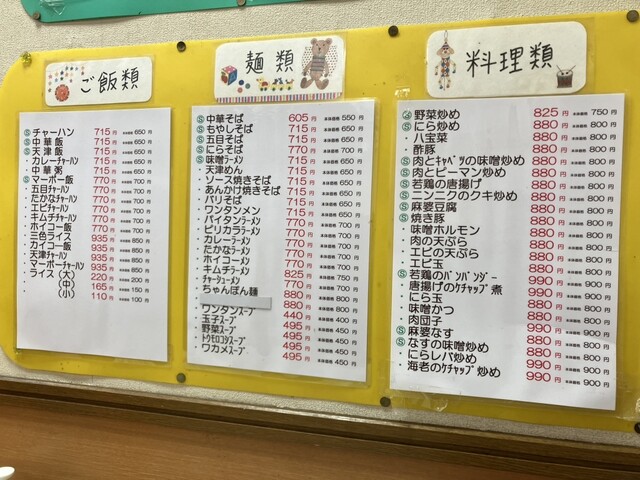 ご飯類
Ⓢ チャーハン 715円 本体価格 650円
Ⓢ 中華飯 715円 本体価格 650円
Ⓢ 天津飯 715円 本体価格 650円
・カレーチャーハン 715円 本体価格 650円
・中華粥 715円 本体価格 650円
Ⓢ マーボー飯 770円 本体価格 700円
・五目チャーハン 770円 本体価格 700円
・たかなチャーハン 770円 本体価格 700円
・エビチャーハン 770円 本体価格 700円
・キムチチャーハン 770円 本体価格 700円
・ホイコー飯 770円 本体価格 700円
・三色ライス 935円 本体価格 850円
・カイコー飯 935円 本体価格 850円
・天津チャーハン 935円 本体価格 850円
・ライス(大) 220円 本体価格 200円
・(中) 165円 本体価格 150円
・(小) 110円 本体価格 100円
麺類
Ⓢ 中華そば 605円 本体価格 550円
Ⓢ もやしそば 715円 本体価格 650円
Ⓢ 五目そば 715円 本体価格 650円
Ⓢ にらそば 770円 本体価格 700円
Ⓢ 味噌ラーメン 715円 本体価格 650円
・天津めん 715円 本体価格 650円
・ソース焼きそば 715円 本体価格 650円
・あんかけ焼きそば 715円 本体価格 650円
・バリそば 715円 本体価格 650円
・ワンタンメン 715円 本体価格 650円
・パイタンラーメン 770円 本体価格 700円
・ピリカララーメン 770円 本体価格 700円
・カレーラーメン 770円 本体価格 700円
・たかなラーメン 770円 本体価格 700円
・ホイコーメン 770円 本体価格 700円
・キムチラーメン 825円 本体価格 750円
・チャーシューメン 770円 本体価格 700円
・ちゃんぽん麺 880円 本体価格 800円
880円 本体価格 800円
・ワンタンスープ 440円 本体価格 400円
・玉子スープ 495円 本体価格 450円
・野菜スープ 495円 本体価格 450円
・トウモロコシスープ 495円 本体価格 450円
・ワカメスープ 495円 本体価格 450円
料理類
Ⓢ 野菜炒め 825円 本体価格 750円
Ⓢ にら炒め 880円 本体価格 800円
・八宝菜 880円 本体価格 800円
・酢豚 880円 本体価格 800円
Ⓢ 肉とキャベツの味噌炒め 880円 本体価格 800円
Ⓢ 肉とピーマン炒め 880円 本体価格 800円
Ⓢ 若鶏の唐揚げ 880円 本体価格 800円
Ⓢ ニンニクのクキ炒め 880円 本体価格 800円
Ⓢ 麻婆豆腐 880円 本体価格 800円
Ⓢ 焼き豚 880円 本体価格 800円
・味噌ホルモン 880円 本体価格 800円
・肉の天ぷら 880円 本体価格 800円
・エビの天ぷら 880円 本体価格 800円
・エビ玉 880円 本体価格 800円
Ⓢ 若鶏のバンバンジー 990円 本体価格 900円
・唐揚げのケチャップ煮 990円 本体価格 900円
・にら玉 880円 本体価格 800円
・味噌かつ 880円 本体価格 800円
・肉団子 880円 本体価格 800円
Ⓢ 麻婆なす 990円 本体価格 900円
Ⓢ なすの味噌炒め 880円 本体価格 800円
・にらレバ炒め 880円 本体価格 800円
・海老のケチャップ炒め 990円 本体価格 900円